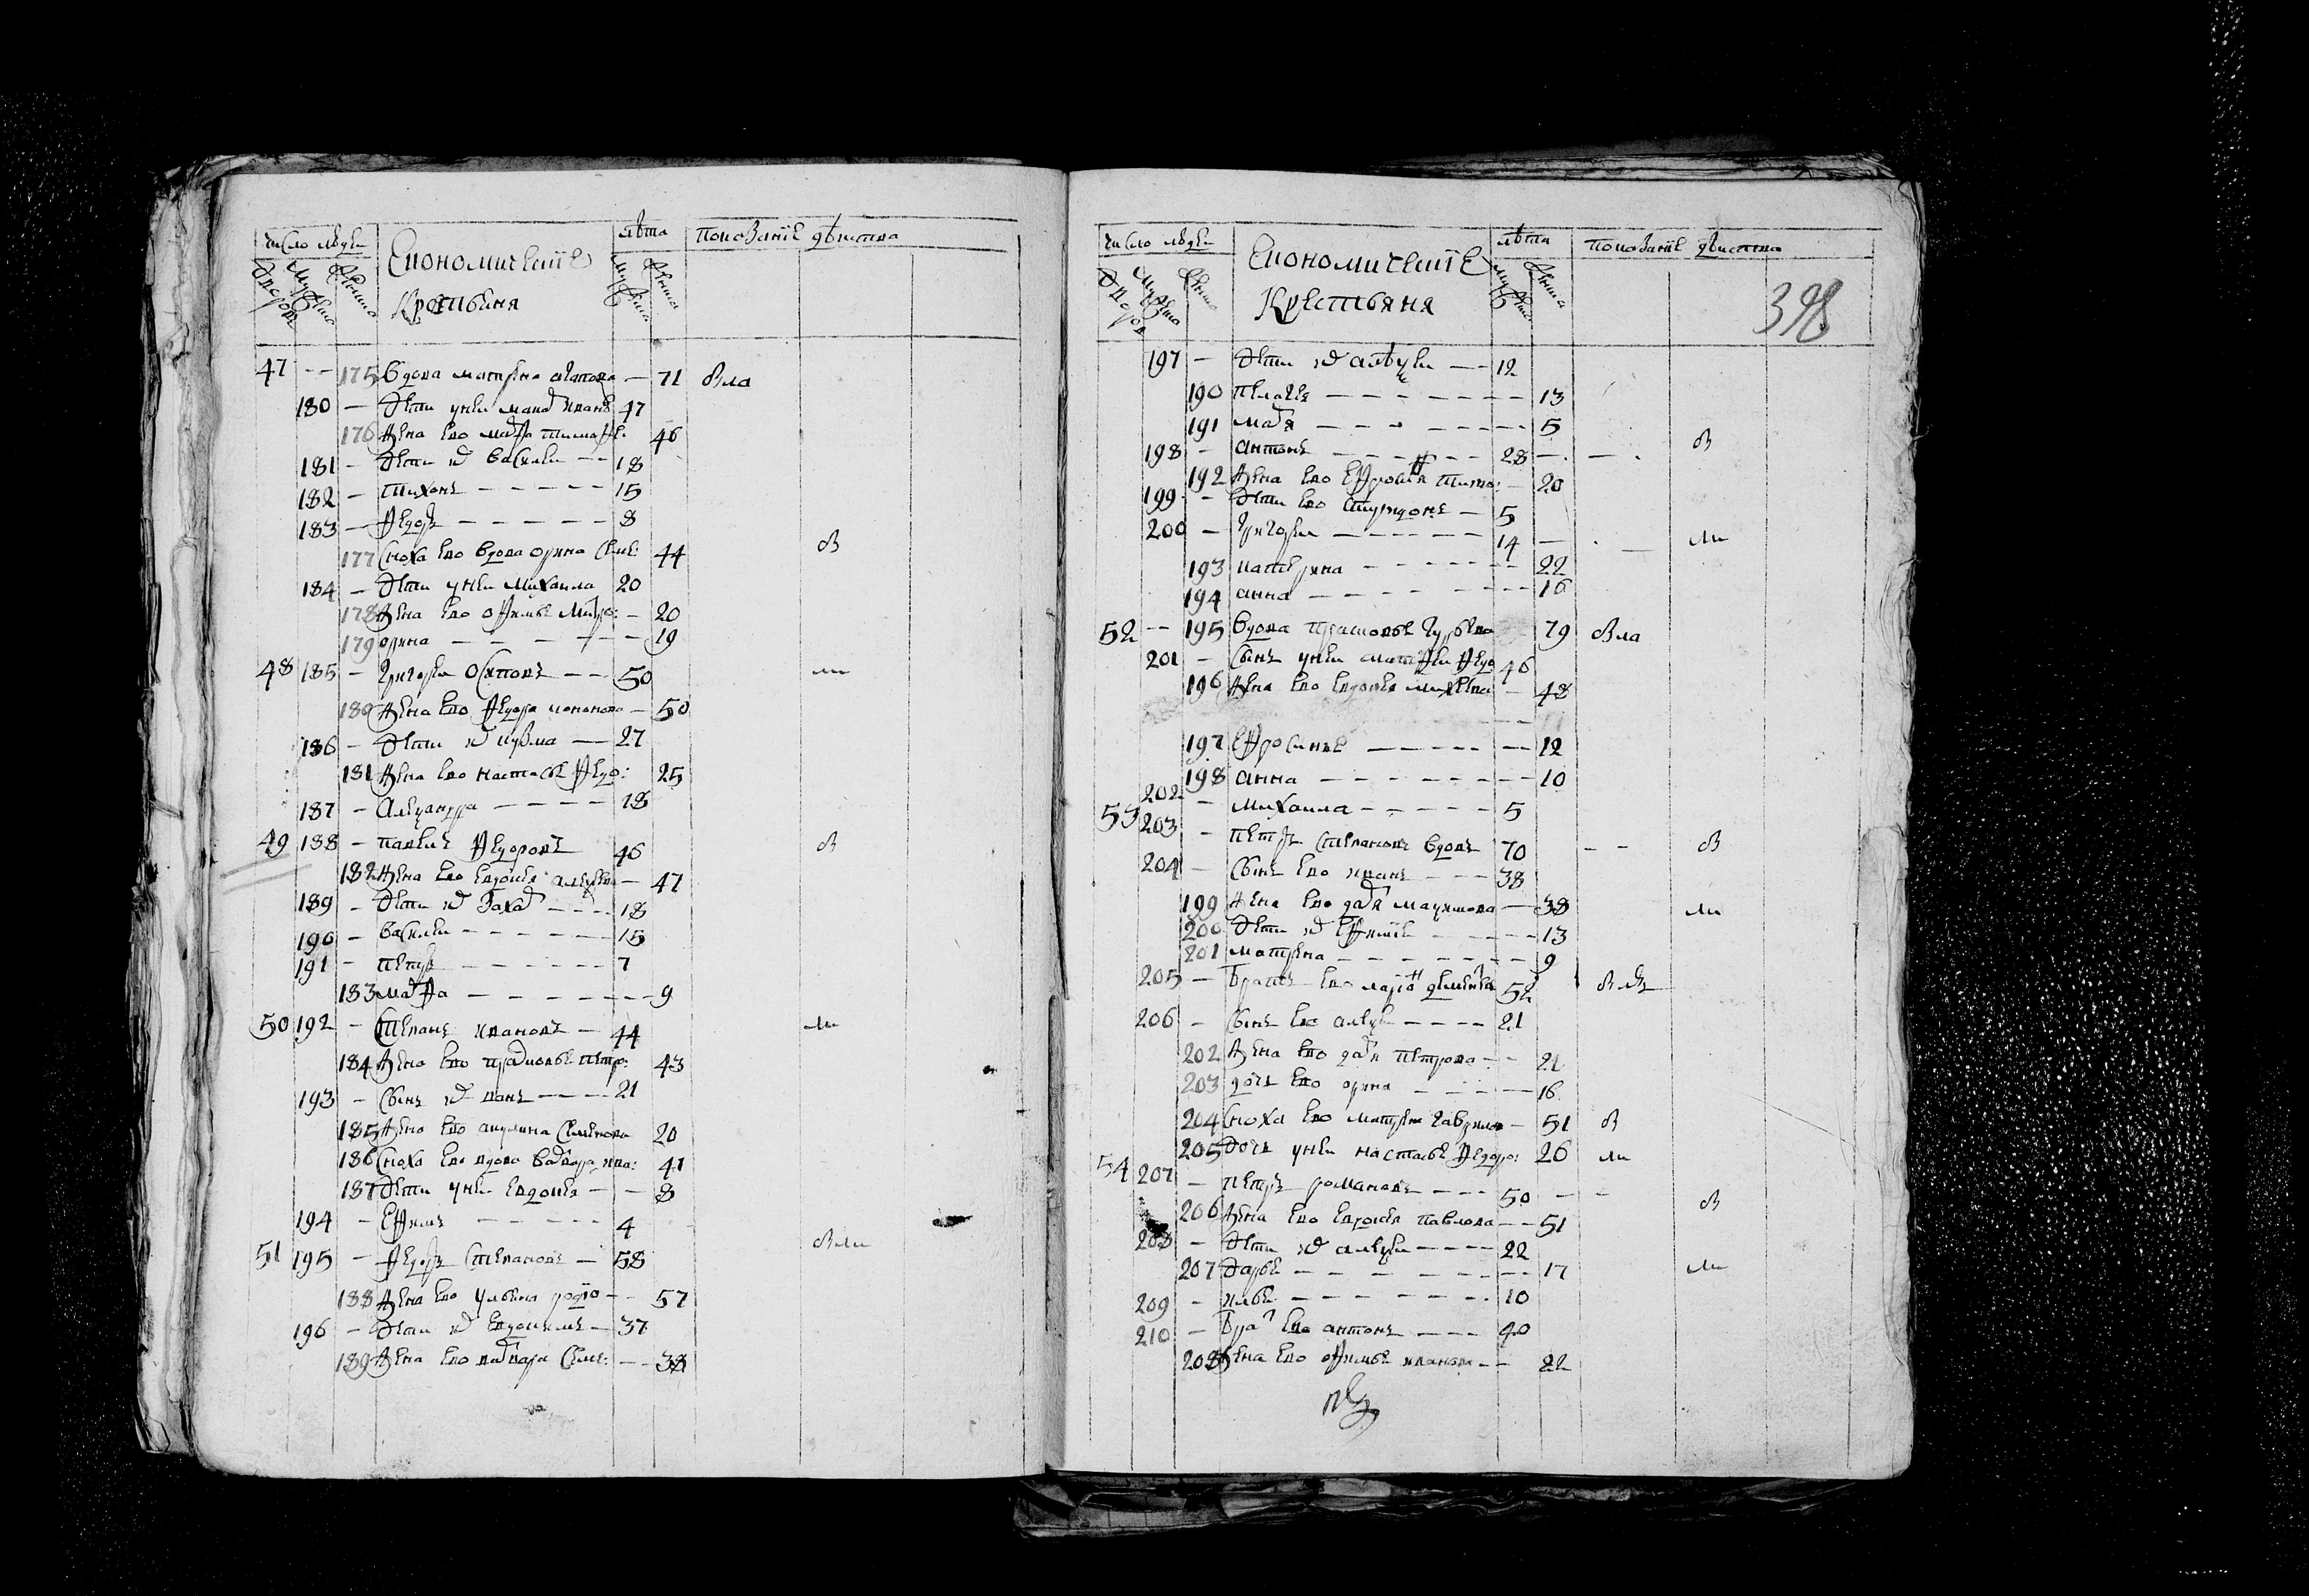 число людеи
Економические
лѣта
показание действа
дворовъ
мужеска
женска
Крестьяня
мужеска
женска
47 -- 175 вдова матрена — 71 вла
180 — дети у неи иванъ 47
176 жена ево марфа тимофе: 46
181 — дети их василеи -- 18
182 — тихонъ ----- 15
183 — федоръ ----- 8
177 сноха ево вдова орина семе: 44 в
184 — дети у неи михаила 20
178 жена ево офимье митро: — 20
179 орина ----- 19
48 185 — григореи осиповъ -- 50 ли
180 жена ево федора — 50
186 — дети их кузма — 27
181 жена ево настасье федо: 25
187 — александра ---- 18
49 188 — павелъ федоровъ 46 в
182 жена ево евдокея алексеева — 47
189 — дети их захар ---- 18
190 — василеи ------ 15
191 — петръ ------- 7
183 марфа ------- 9
50 192 — степанъ ивановъ — 44 ли
184 жена ево прасковье петро: 43
193 — сынъ их ---- 21
185 жена ево акулина семенова 20
186 сноха ево вдова варвара ива: 41
187 дети у неи евдокея -- 8
194 — ефимъ ----- 4
51 195 — федоръ степановъ — 58 вли
188 жена ево ульяна родио -- 57
196 — дети их евдокимъ — 37
189 жена ево варвара семе: -- 38
число людеи
Економические
лѣта
показание действа
дворов
мужеска
женска
Крестьяня
мужеска
женска
398
197 — дети их алексеи -- 12
190 пелагея ------- 13
191 марья ------ 5
198 — антонъ ------ 28 в
192 жена ево ефросинья — 20
199 — дети ево спиридонъ — 5
200 — григореи ------ 14 ли
193 катерина ------ 22
194 анна ------- 16
52 -- 195 вдова прасковье гурьева 79 вла
201 — сынъ у неи матфеи федо 46
196 жена ево евдокея михеева — 48
197 ефросинье ------ 12
198 анна ------- 10
202 — михаила ----- 5
53 203 — петръ степановъ вдовъ 70 -- в
204 — сынъ ево иванъ --- 38
199 жена ево дарья максимова — 38 ли
200 дети их ------ 13
201 матрена ------- 9
205 — братъ ево 52
206 — сынъ ево алексеи ---- 21
202 жена ево дарья петрова -- 21
203 дочь ево орина ----- 16
204 сноха ево матрена гаврилов — 51 в
205 дочь у неи настасье федоро: 26 ли
54 207 — петръ романовъ --- 50 -- в
206 жена ево евдокея павлова -- 51
208 — дети их алексеи ---- 22
207 дарье ------- 17 ли
209 — илья ------- 10
210 — брат ево антонъ --- 40
208 жена ево офимье иванова -- 22